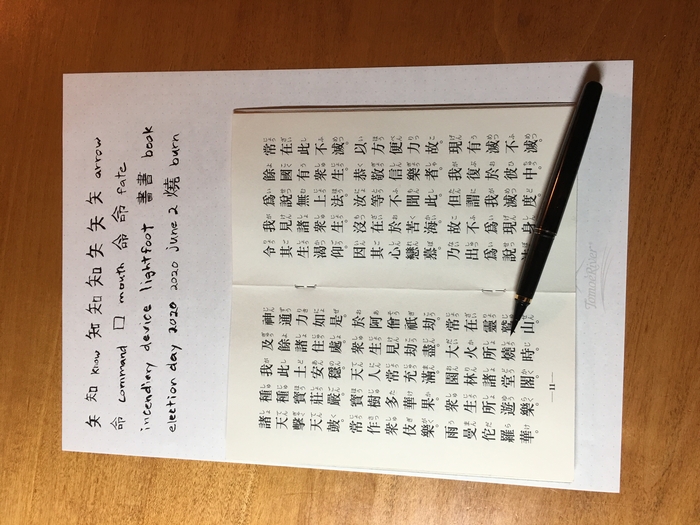 矢 知 know 知 知 知 矢 矢 矢 arrow
命 command 口 mouth 命 命 fate
incendiary device lightfoot 書 書 book
election day 2020 2020 june 2 燒 burn
常在此不滅。以方便力故。現有滅不滅。
餘國有衆生。恭敬信樂者。我復於彼中。
爲說無上法。汝等不聞此。但謂我滅度。
我見諸衆生。沒在於苦海。故不爲現身。
令其生渴仰。因其心戀慕。乃出爲說法。
神通力如是。於阿僧祇劫。常在靈鷲山。
及餘諸住處。衆生見劫盡。大火所燒時。
我此土安穩。天人常充滿。園林諸堂閣。
種種寶莊嚴。寶樹多華果。衆生所遊樂。
諸天擊天鼓。常作衆伎樂。雨曼佗羅華。
— 11 —
Tomoe River